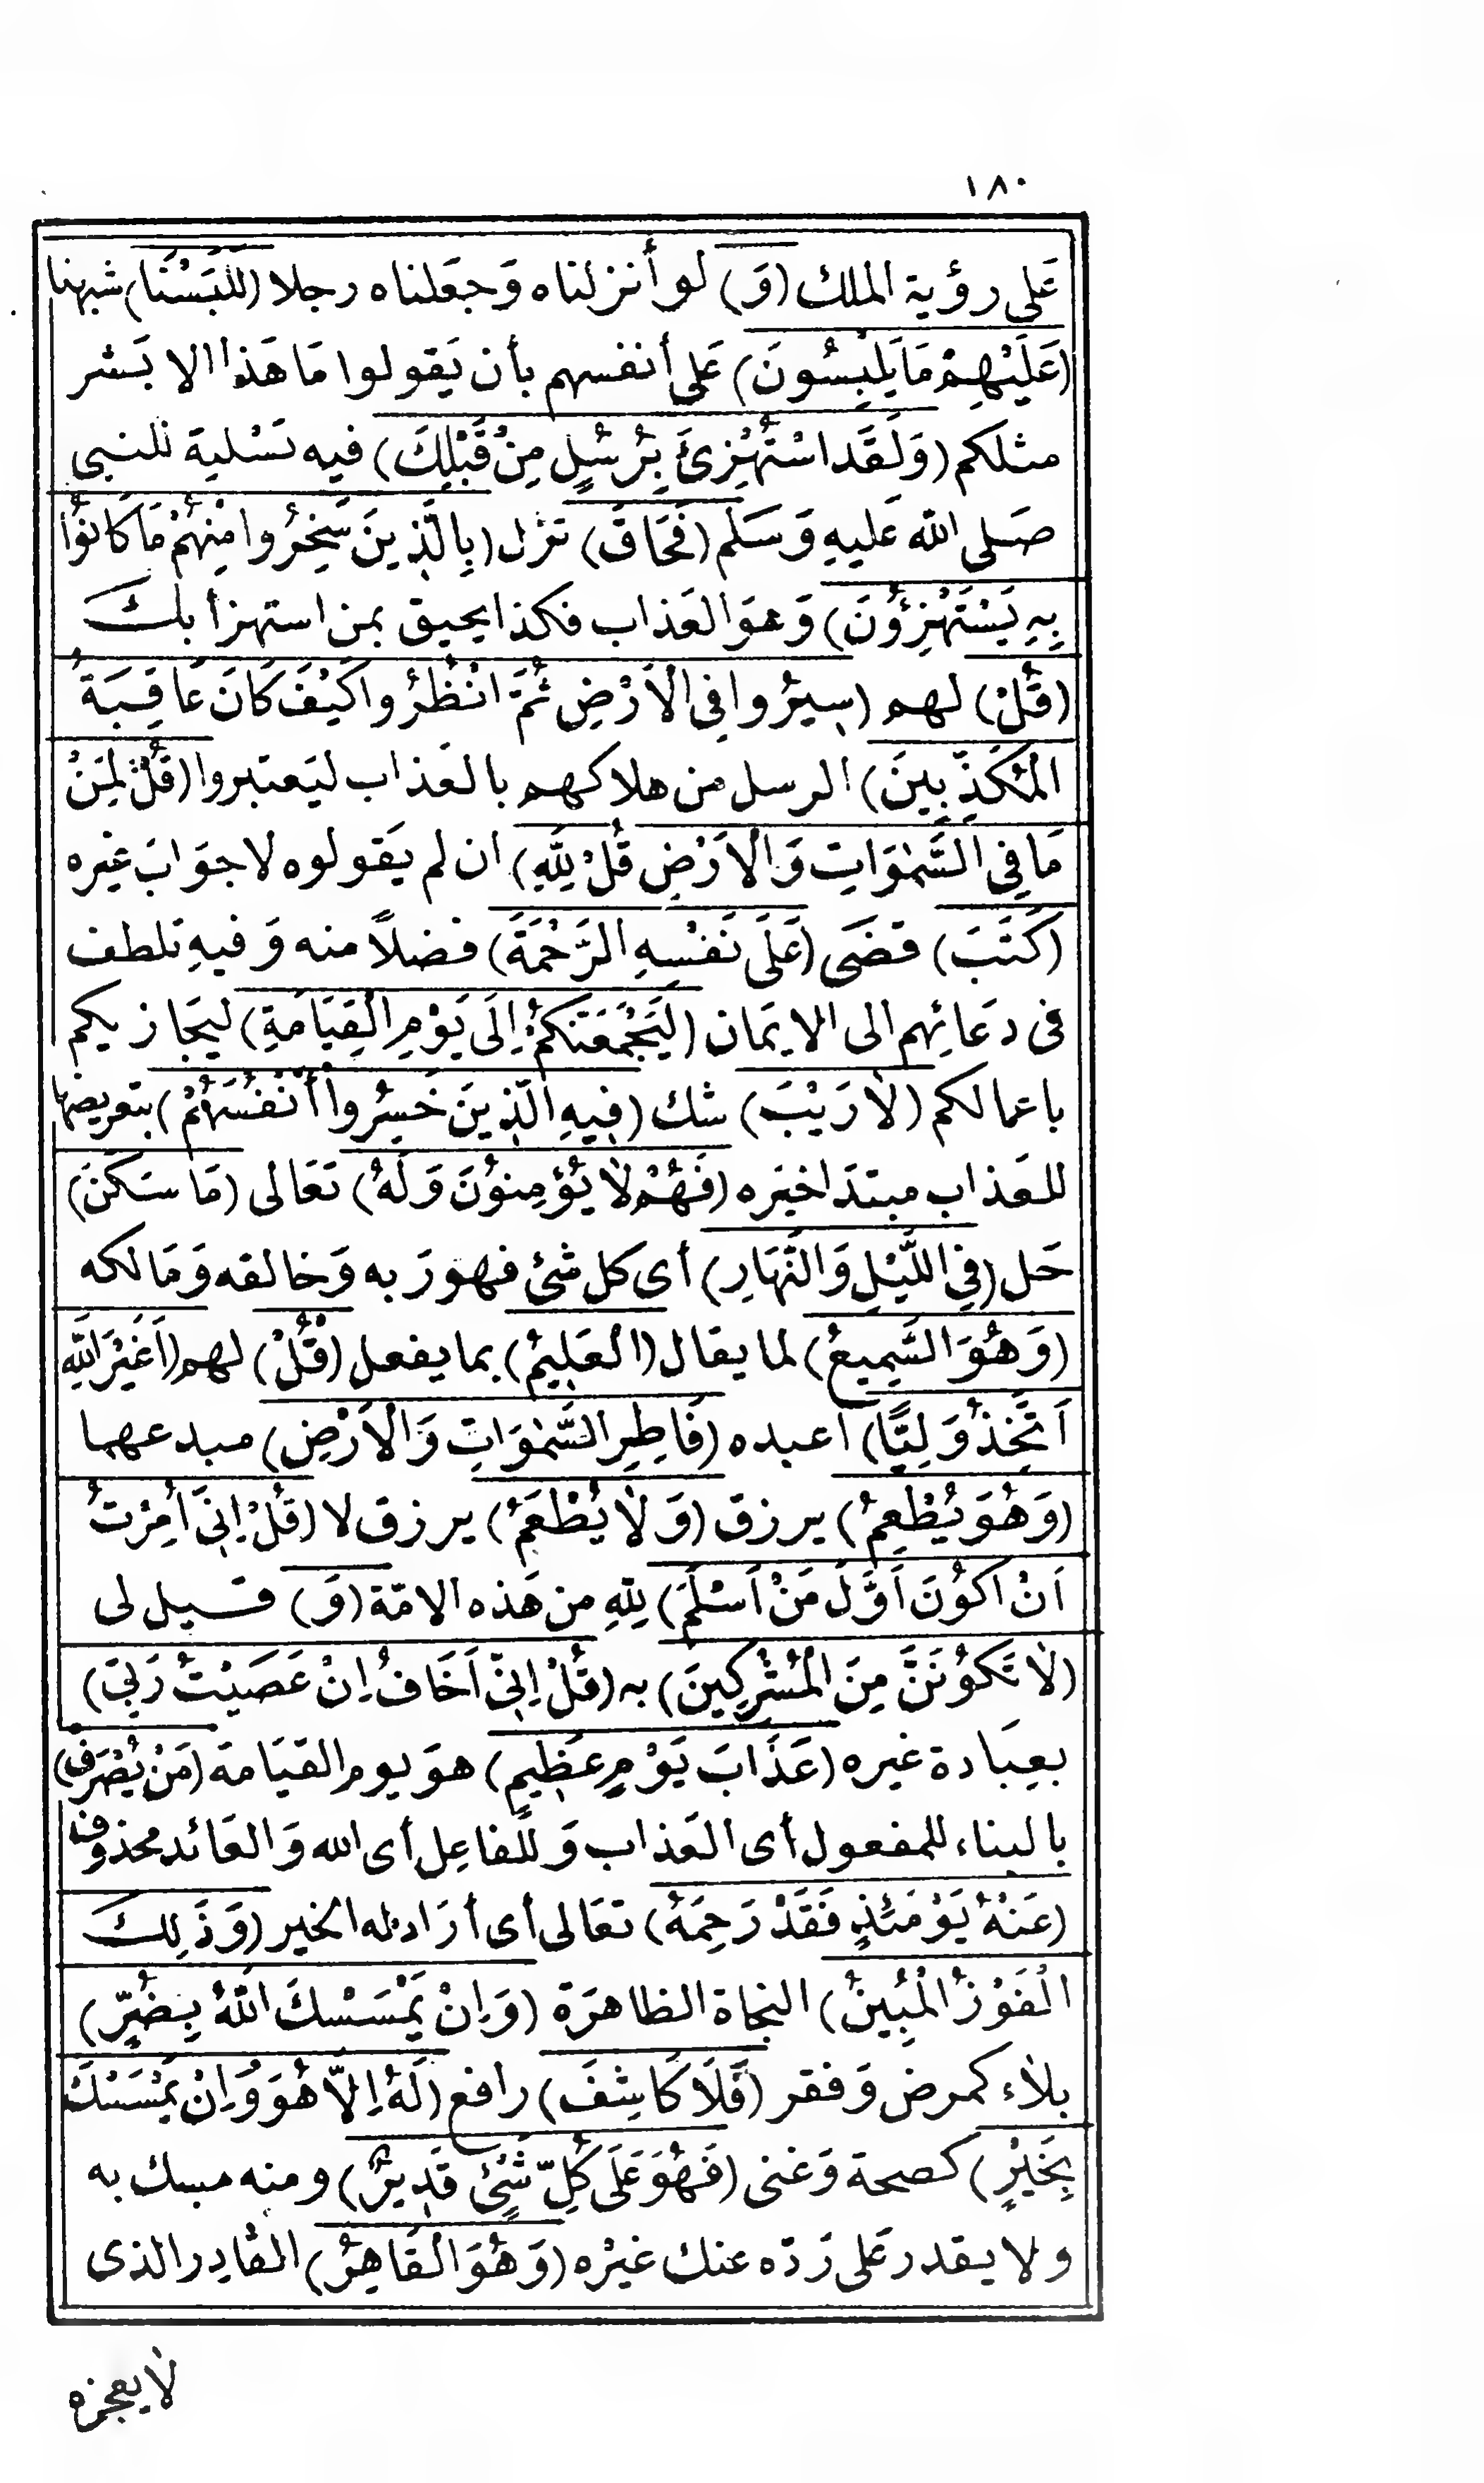 ١٨٠
عَلى رؤية الملك (وَ) لو أنزلناه وَجعَلناه رجلا (لَلَبَسْنَا) شبهنا
(عَلَيْهِمْ مَا يَلْبِسُونَ) عَلى أنفسهم بأن يَقولوا مَا هَذا الا بَشر
مثلكم (وَلَقَد اسْتُهْزِئَ بِرُسُلٍ مِنْ قَبْلِكَ) فيه تسْلية للنبى
صَلى الله عَليهِ وَسَلم (فَحَاقَ) نزل (بِالَّذِينَ سَخِرُوا مِنْهُمْ مَا كَانُوا
بِهِ يَسْتَهْزِؤُنَ) وَهوَ العَذاب فكذا يحيق بمن استهزأ بك
(قُلْ) لهم (سِيرُوا فِى الْاَرْضِ ثُمَّ انْظُرُوا كَيْفَ كَانَ عَاقِبَةُ
الْمُكَذِّبِينَ) الرسل من هلاكهم بالعَذاب ليَعتبروا (قُلْ لِمَنْ
مَا فِى السَّمٰوَاتِ وَالْاَرْضِ قُلْ لِلّٰهِ) ان لم يَقولوه لا جوَابَ غيره
(كَتَبَ) قضَى (عَلَى نَفْسِهِ الرَّحْمَةَ) فضلاً منه وَفيهِ تلطف
فى دعَائهم الى الايمَان (لَيَجْمَعَنَّكُمْ اِلَى يَوْمِ الْقِيَامَةِ) ليجَازيكم
باعمالكم (لَا رَيْبَ) شك (فِيهِ الَّذِينَ خَسِرُوا أَنْفُسَهُمْ) بتعريضها
للعَذاب مبتدَا خبَره (فَهُمْ لَا يُؤْمِنُونَ وَلَهُ) تعَالى (مَا سَكَنَ)
حَل (فِى اللَّيْلِ وَالنَّهَارِ) أى كل شئ فهو رَبه وَخالقه وَمَالكه
(وَهُوَ السَّمِيعُ) لما يقال (الْعَلِيمُ) بما يفعل (قُلْ) لهم (اَغَيْرَ اللّٰهِ
اَتَّخِذُ وَلِيًّا) اعبده (فَاطِرِ السَّمٰوَاتِ وَالْاَرْضِ) مبدعهما
(وَهُوَ يُطْعِمُ) يرزق (وَلَا يُطْعَمُ) يرزق لا (قُلْ اِنِّى اُمِرْتُ
اَنْ اَكُونَ اَوَّلَ مَنْ اَسْلَمَ) لِلّٰهِ من هَذه الامّة (وَ) قيل لى
(لَا تَكُونَنَّ مِنَ الْمُشْرِكِينَ) به (قُلْ اِنِّى اَخَافُ اِنْ عَصَيْتُ رَبِّى)
بعِبَادة غيره (عَذَابَ يَوْمٍ عَظِيمٍ) هوَ يوم القيَامَة (مَنْ يُصْرَفْ)
بالبناء للمفعول أى العَذاب وَللفاعِل أى الله وَالعَائد محذوف
(عَنْهُ يَوْمَئِذٍ فَقَدْ رَحِمَهُ) تعَالى أى أرَاد له الخير (وَذَلِكَ
الْفَوْزُ الْمُبِينُ) النجاة الظاهرَة (وَاِنْ يَمْسَسْكَ اللّٰهُ بِضُرٍّ)
بلاء كمرض وَفقر (فَلَا كَاشِفَ) رافع (لَهُ اِلَّا هُوَ وَاِنْ يَمْسَسْكَ
بِخَيْرٍ) كصحة وَغنى (فَهُوَ عَلَى كُلِّ شَئٍ قَدِيرٌ) ومنه مسك به
ولا يقدر عَلى رَدّه عنك غيرُه (وَهُوَ الْقَاهِرُ) القادِر الذى
لا يعجزه